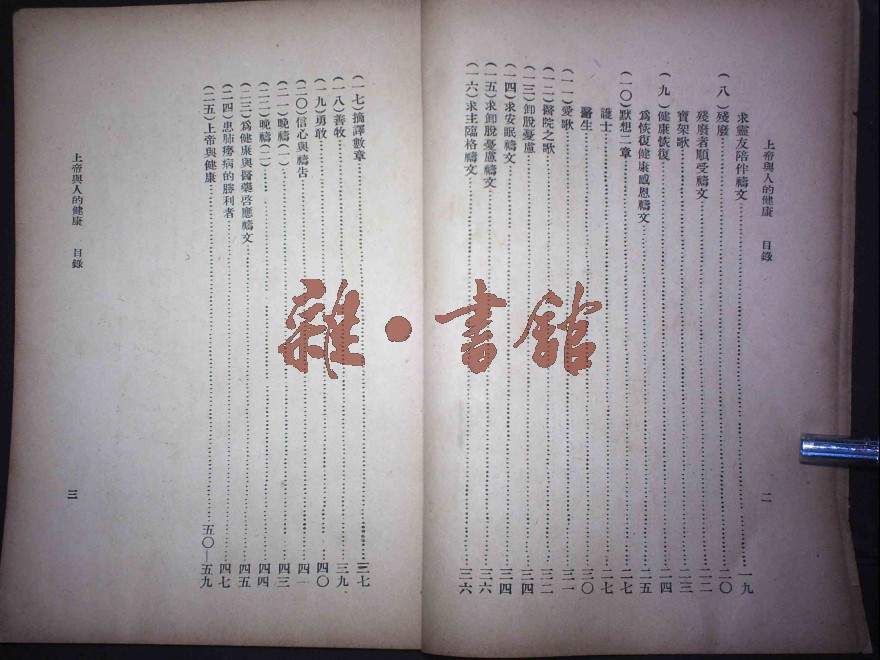 上帝與人的健康　目錄
二
求靈友陪伴禱文……一九
（八）殘廢……二〇
殘廢者順受禱文……二二
寶架歌……二三
（九）健康恢復……二四
為恢復健康感恩禱文……二五
（一〇）默想二章……二七
護士……二七
醫生……三〇
（一一）愛歌……三一
（一二）醫院之歌……三二
（一三）卸脫憂慮……三四
（一四）求安眠禱文……三四
（一五）求卸脫憂慮禱文……三六
（一六）求主臨格禱文……三六
（一七）摘譯數章……三七
（一八）善牧……三九
（一九）勇敢……四〇
（二〇）信心與禱告……四一
（二一）晚禱（一）……四三
（二二）晚禱（二）……四四
（二三）為健康與醫藥啓應禱文……四五
（二四）患肺癆病的勝利者……四七
（二五）上帝與健康……五〇—五九
上帝與人的健康　目錄
三
雜·書館